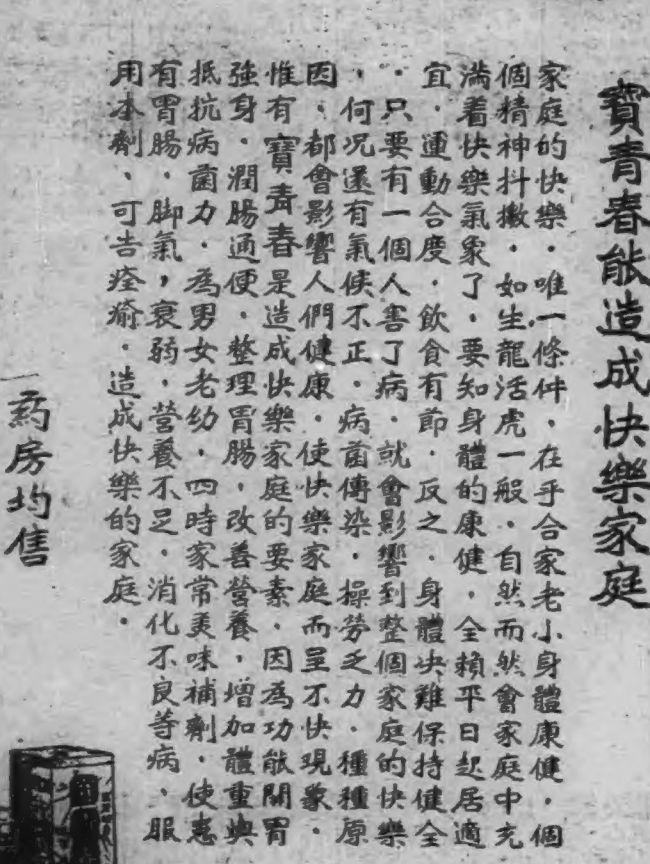 寶青春能造成快樂家庭
家庭的快樂．唯一條件．在乎合家老小身體康健．個
個精神抖擻．如生龍活虎一般．自然而然會家庭中充
滿着快樂氣象了．要知身體的康健．全賴平日起居適
宜．運動合度．飲食有節．反之．身體決難保持健全
．只要有一個人害了病．就會影響到整個家庭的快樂
．何况還有氣候不正．病菌傳染．操勞乏力．種種原
因．都會影響人們健康．使快樂家庭而呈不快現象．
惟有寶青春是造成快樂家庭的要素．因為功能開胃
強身．潤腸通便．整理胃腸．改善營養．增加體重與
抵抗病菌力．為男女老幼．四時家常美味補劑．使患
有胃腸．脚氣．衰弱．營養不足．消化不良等病．服
用本劑．可告痊瘉．造成快樂的家庭．
药房均售